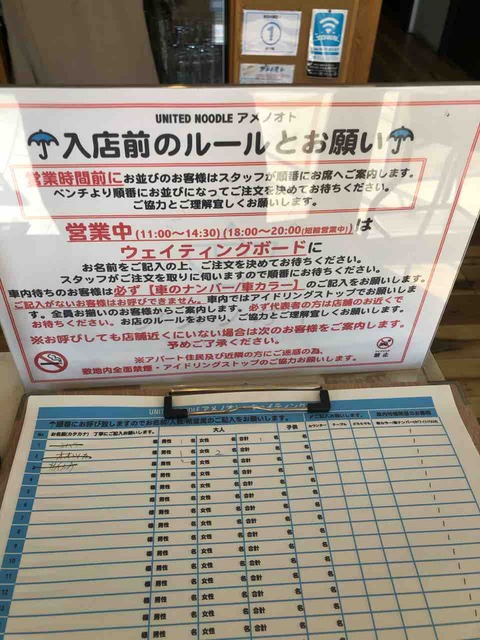 UNITED NOODLE アメノオト
入店前のルールとお願い
営業時間前にお並びのお客様はスタッフが順番にお席へご案内します。
ベンチより順番にお並びになってご注文を決めてお待ちください。
ご協力とご理解宜しくお願いします。
営業中(11:00〜14:30)(18:00〜20:00(短縮営業中))は
ウェイティングボードに
お名前をご記入の上、ご注文を決めてお待ちください。
スタッフがご注文を取りに伺いますので順番にお待ちください。
車内待ちのお客様は必ず【車のナンバー/車カラー】のご記入をお願いします。
ご記入がないお客様はお呼びできません。車内ではアイドリングストップでお願いしま
す。全員お揃いのお客様からご案内します。必ず代表者の方は店舗のお近くで
お待ちください。お店のルールをお守り、ご協力とご理解宜しくお願いします。
※お呼びしても店舗近くにいない場合は次のお客様をご案内します。
予めご了承ください。
※アパート住民及び近隣の方にご迷惑の為、
敷地内全面禁煙・アイドリングストップのご協力お願いします。
UNITED NOODLE アメノオト ウェイティング
お名前(カタカナ) 丁寧にご記入お願いします。
大人
子供
カウンター
テーブル
どちらでも
様 男性 名 女性 名 合計 名 名
様 男性 名 女性 名 合計 名 名
様 男性 名 女性 名 合計 名 名
様 男性 名 女性 名 合計 名 名
様 男性 名 女性 名 合計 名 名
様 男性 名 女性 名 合計 名 名
様 男性 名 女性 名 合計 名 名
様 男性 名 女性 名 合計 名 名
10
11
12